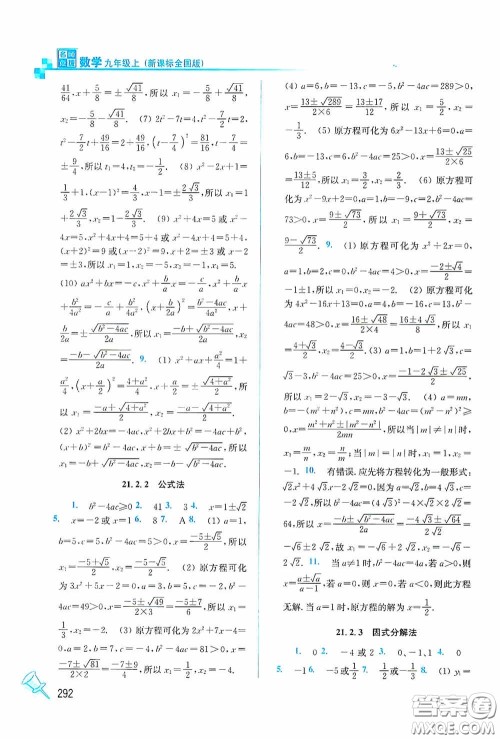 数学 九年级上(新课标全国版)
41/64, x+5/8=±√41/8, 所以 x₁=-5/8+√41/8,
x₂=-5/8-√41/8. (7) 2t²-7t=4, t²-7/2t=
2, t²-7/2t+49/16=2+49/16, (t-7/4)²=81/16, t-7/4=
±9/4, 所以 t₁=4, t₂=-1/2. (8) x²-2x+1=
1/3+1, (x-1)²=4/3, x-1=±2√3/3, 所以 x₁=1
+2√3/3, x₂=1-2√3/3. (9) x²+4x=5 或 x²+
4x=5, x²+4x+4=5+4 或 x²-4x+4=5+4,
(x+2)²=9 或 (x-2)²=9, x+2=±3 或 x-2=
±3, 所以 x₁=1, x₂=-5, x₁=-1, x₁=5.
(10) ax²+bx=-c, x²+b/a x=-c/a, x²+b/a x+
b²/4a²=-c/a+b²/4a², (x+b/2a)²=b²-4ac/4a², x+
b/2a=±√b²-4ac/2a, 所以 x₁=-b+√b²-4ac/2a, x₂=
-b-√b²-4ac/2a. 9. (1) x²+ax+a²/4=1+
a²/4, (x+a/2)²=4+a²/4, x+a/2=±√4+a²/2, 所
以 x₁=-a+√4+a²/2, x₂=-a-√4+a²/2.
(2) x²+2bx=-4ac, x²+2bx+b²=b²-
4ac, (x+b)²=b²-4ac, x+b=±√b²-4ac, 所
以 x₁=-b+√b²-4ac, x₂=-b-√b²-4ac.
21.2.2 公式法
1. b²-4ac≥0 2. 41 3. 3 4. x=1±√2
5. x=-2或x=1 6. 8 7. A 8. (1) a=
1, b=5, c=5, b²-4ac=5>0, x=-5±√5/2×1, 所以
x₁=-5+√5/2, x₂=-5-√5/2. (2) 原方程可化为
3x²+5x-2=0, a=3, b=5, c=-2, b²-
4ac=49>0, x=-5±√49/2×3=-5±7/6, 所以 x₁=
1/3, x₂=-2. (3) 原方程可化为 2x²+7x-4=
0, a=2, b=7, c=-4, b²-4ac=81>0, x=
-7±√81/2×2=-7±9/4, 所以 x₁=1/2, x₂=-4.
(4) a=6, b=-13, c=-5, b²-4ac=289>0,
x=13±√289/2×6=13±17/12, 所以 x₁=5/2, x₂=-
1/3. (5) 原方程可化为 6x²-13x+6=0, a=
6, b=-13, c=6, b²-4ac=25>0, x=13±√25/2×6=
13±5/12, 所以 x₁=3/2, x₂=2/3. (6) 原方程可化
为 x²-9x+2=0, a=1, b=-9, c=2, b²-4ac=
73>0, x=9±√73/2, 所以 x₁=9+√73/2, x₂=
9-√73/2. 9. (1) 原方程可化为 x²+2x=0,
a=1, b=2, c=0, b²-4ac=4>0, x=-2±√4/2=
-1±1, 所以 x₁=0, x₂=-2. (2) 原方程可化为
4x²-16x+13=0, a=4, b=-16, c=13, b²-
4ac=48>0, x=16±√48/2×4=16±4√3/8, 所以 x₁=
4+√3/2, x₂=4-√3/2. (3) a=1, b=1+2√3, c=
√3-3, b²-4ac=25>0, x=-1-2√3±√25/2×1,
所以 x₁=2-√3, x₂=-3-√3. (4) a=mn,
b=-(m²+n²), c=mn, b²-4ac=(m²-n²)²≥
0, x=m²+n²±√(m²-n²)²/2mn, 当 |m|≠|n| 时,
x₁=m/n, x₂=n/m; 当 |m|=|n| 时, x₁=x₂=
m/n. 10. 有错误. 应先将方程转化为一般形式:
√2x²+4√3x-2√2=0, 因为 a=√2, b=4√3,
c=-2√2, 所以 b²-4ac=(4√3)²-4×√2×(-2√2)=
64, 所以 x=-b±√b²-4ac/2a=-4√3±√64/2×√2=
-√6±2√2, 所以 x₁=-√6+2√2, x₂=-√6-
2√2. 11. 当 a≠1 时, b²-4ac=4a, 若 a≥0,
则 x=a±√a/a-1=√a/√a±1; 若 a<0, 则此方程
无解. 当 a=1 时, 原方程的解为 x=1/2.
21.2.3 因式分解法
1. 0 2. -4或2 3. 0, -1, 1 4. 0
5. -1 6. -5或1/2 7. 1/2或-1/4 8. (1) y₁=
292